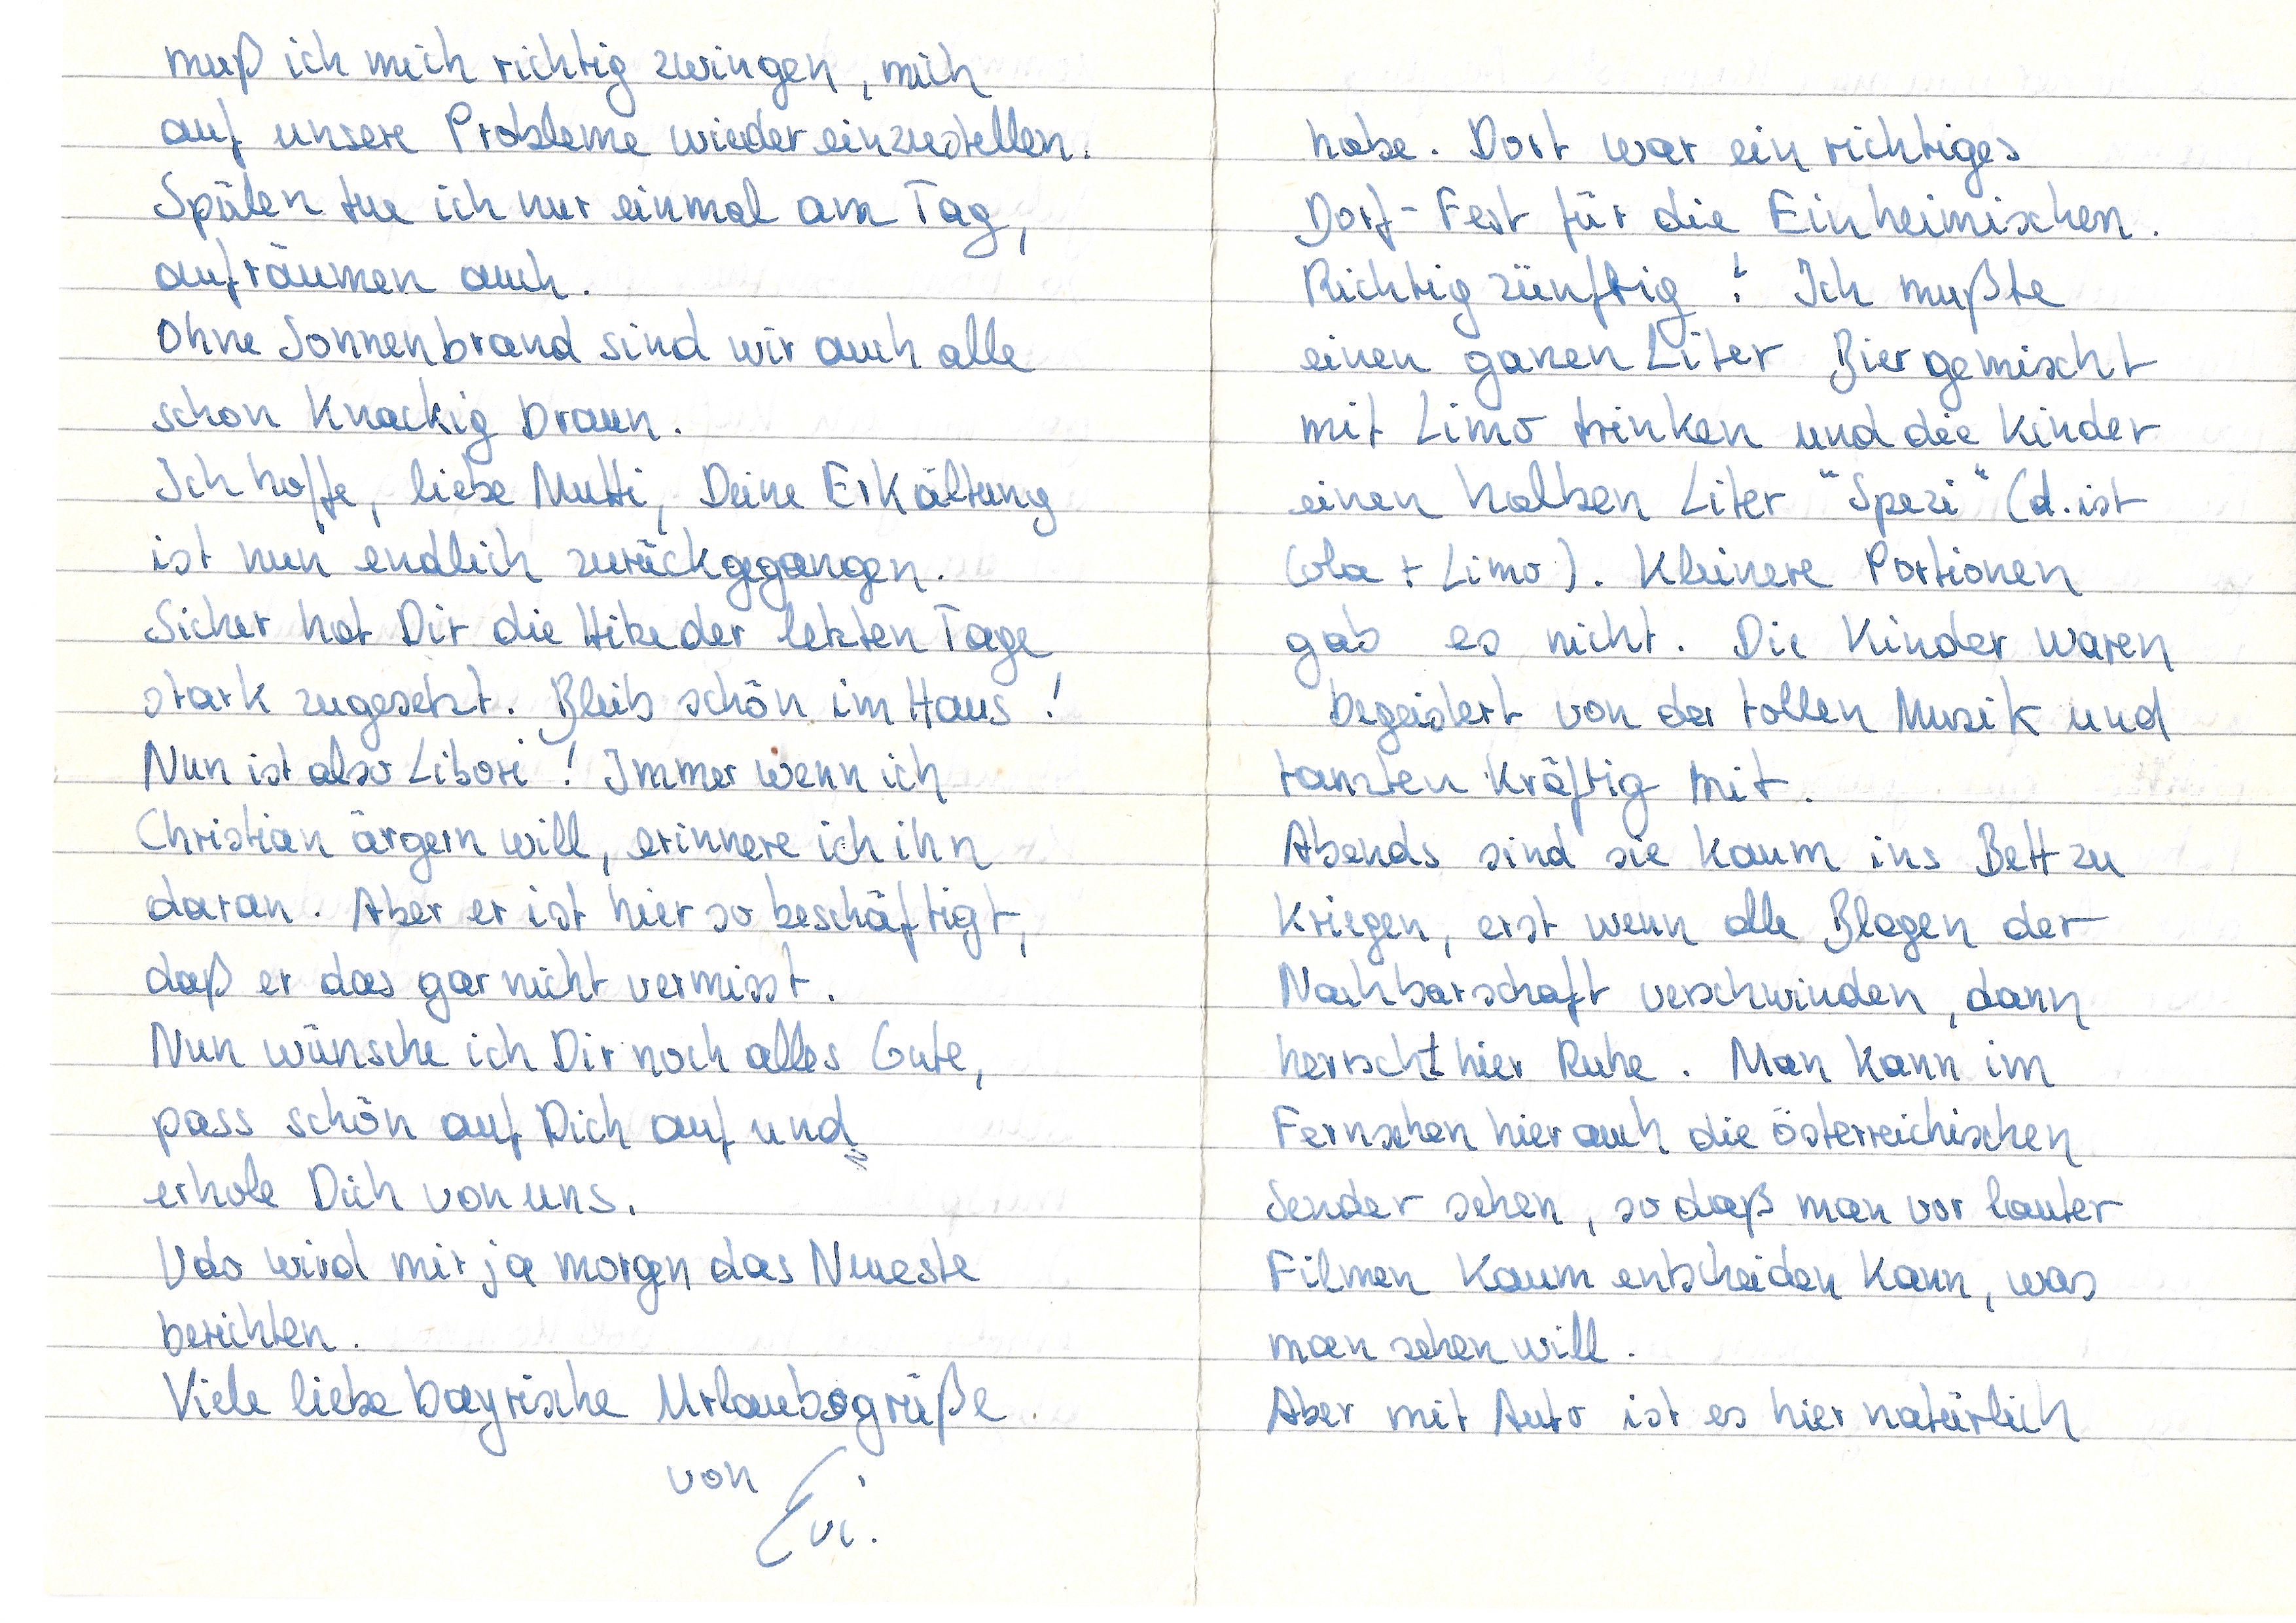 muß ich mich richtig zwingen, mich
auf unsere Probleme wieder einzustellen.
Spülen tue ich nur einmal am Tag,
aufräumen auch.
Ohne Sonnenbrand sind wir auch alle
schon knackig braun.
Ich hoffe, liebe Mutti, Deine Erkältung
ist nun endlich zurückgegangen.
Sicher hat Dir die Hitze der letzten Tage
stark zugesetzt. Bleib schön im Haus!
Nun ist also Libori! Immer wenn ich
Christian ärgern will, erinnere ich ihn
daran. Aber er ist hier so beschäftigt,
daß er das gar nicht vermisst.
Nun wünsche ich Dir noch alles Gute,
pass schön auf Dich auf und
erhole Dich von uns.
Udo wird mir ja morgen das Neueste
berichten.
Viele liebe bayrische Urlaubsgrüße
von Evi.
habe. Dort war ein richtiges
Dorf-Fest für die Einheimischen.
Richtig zünftig! Ich mußte
einen ganzen Liter Bier gemischt
mit Limo trinken und die Kinder
einen halben Liter "Spezi" (d. ist
Cola + Limo). Kleinere Portionen
gab es nicht. Die Kinder waren
begeistert von der tollen Musik und
tanzten kräftig mit.
Abends sind sie kaum ins Bett zu
kriegen, erst wenn alle Blagen der
Nachbarschaft verschwinden, dann
herrscht hier Ruhe. Man kann im
Fernsehen hier auch die österreichischen
Sender sehen, so daß man vor lauter
Filmen kaum entscheiden kann, was
man sehen will.
Aber mit Auto ist es hier natürlich